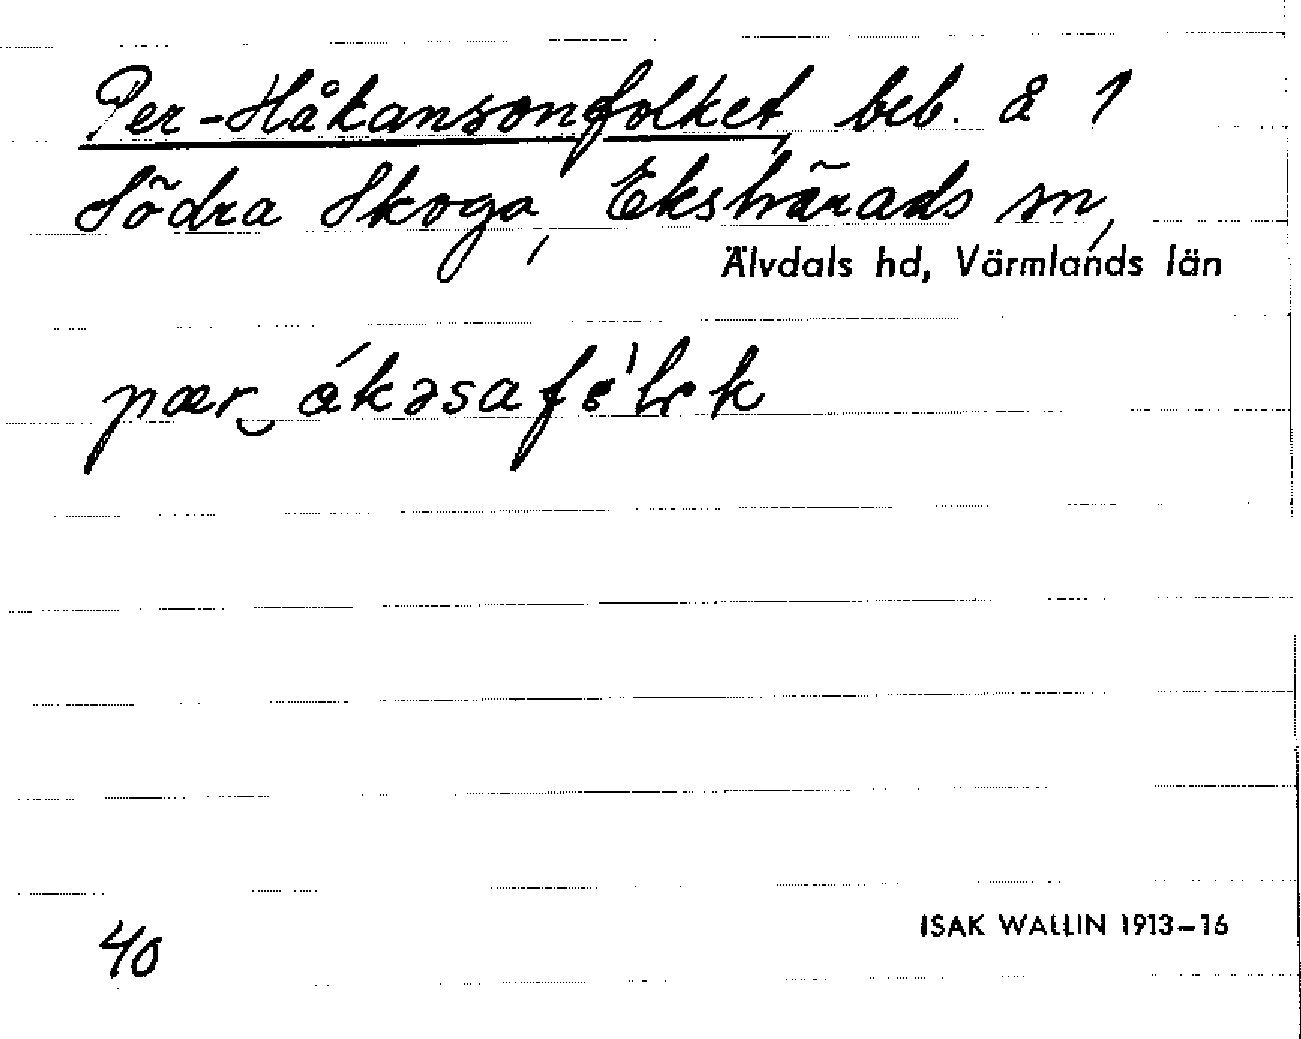 Per-Håkansonfolket, beb. å 1
Södra Skoga, Ekshärads sn,
Älvdals hd, Värmlands län
pær‿ákəsafɵ'lek
40
ISAK WALLIN 1913–16